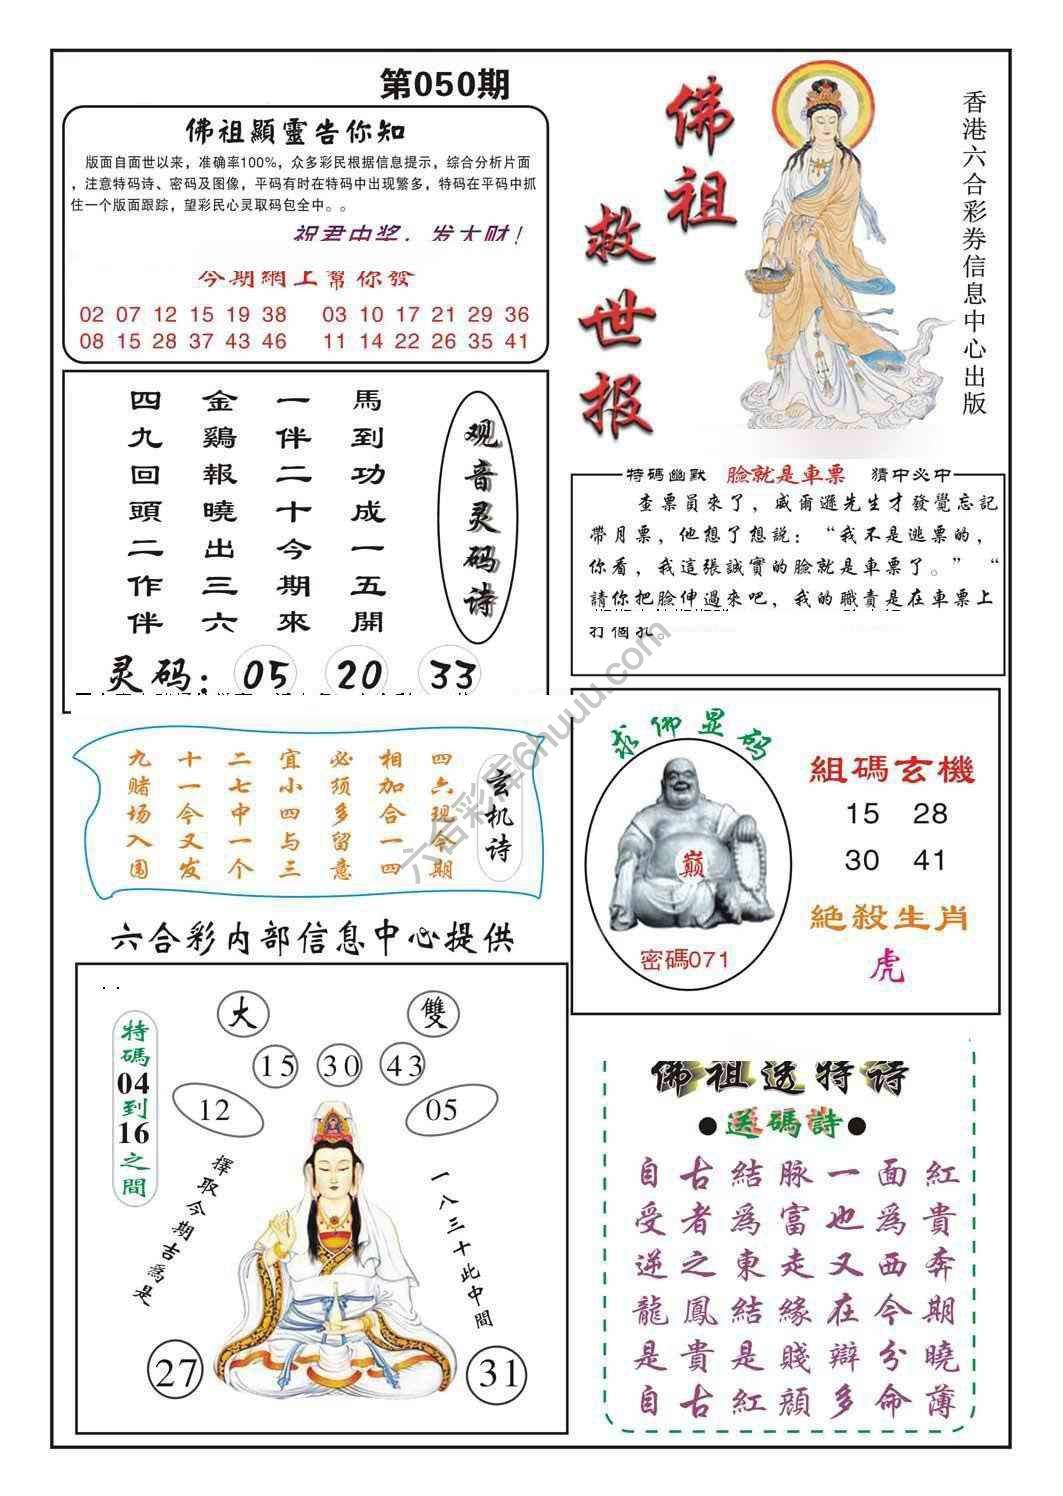 第050期
佛祖顯靈告你知
版面自面世以来，准确率100%，众多彩民根据信息提示，综合分析片面
，注意特码诗、密码及图像，平码有时在特码中出现繁多，特码在平码中抓
住一个版面跟踪，望彩民心灵取码包全中。。
祝君中奖，发大财！
今期網上幫你發
02 07 12 15 19 38 03 10 17 21 29 36
08 15 28 37 43 46 11 14 22 26 35 41
佛祖
救世报
香港六合彩券信息中心出版
馬到功成一五開
一伴二十今期來
金鷄報曉出三六
四九回頭二作伴
观音灵码诗
灵码：05 20 33
特碼幽默 臉就是車票 猜中必中
查票員來了，威爾遜先生才發覺忘記
帶月票，他想了想説：“我不是逃票的，
你看，我這張誠實的臉就是車票了。” “
請你把臉伸過來吧，我的職責是在車票上
打個孔。
玄机诗
四六现今期
相加合一四
必须多留意
宜小四与三
二七中一个
十一今又发
九赌场入围
求佛显码
巅
密碼071
組碼玄機
15 28
30 41
絶殺生肖
虎
六合彩内部信息中心提供
特碼04到16之間
大 雙
15 30 43
12 05
擇取今期吉爲是
一八三十此中間
27 31
佛祖透特诗
●送碼詩●
自古結脉一面紅
受者為富也為貴
逆之東走又西奔
龍鳳結緣在今期
是貴是賤辯分曉
自古紅顔多命薄
六合彩库6huuu.com